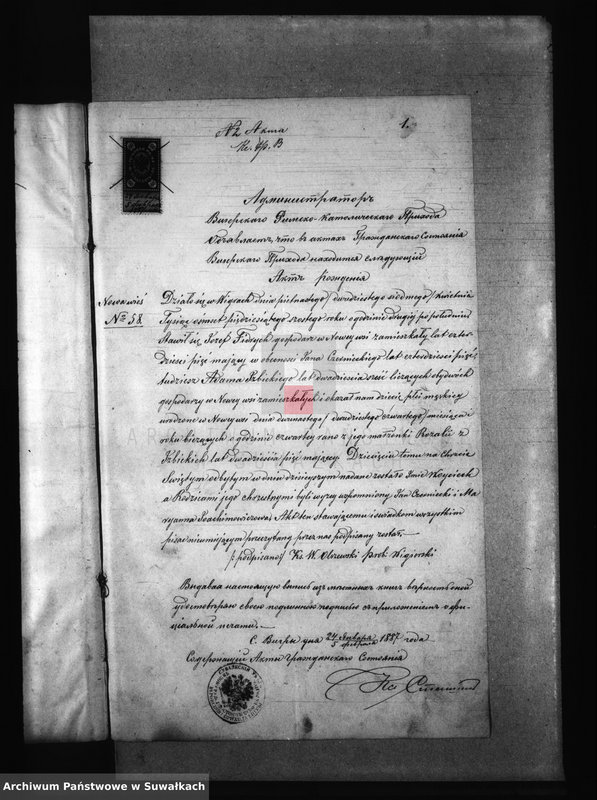 № 2 Акта
1.
Администраторъ
Вигерского Римско-Католического Прихода
Объявляетъ, что въ актахъ Гражданского Состоянія
Вигерского Прихода находится следующій
Актъ рожденія
Nowawieś
№ 58
Działo się w Wigrach dnia piętnastego/ dwudziestego siódmego/ kwietnia
Tysiąc ośmset pięćdziesiątego szóstego roku o godzinie drugiej po południu
Stawił się Józef Fidrych gospodarz w Nowejwsi zamieszkały lat czter-
dzieści pięć mający w obecności Jana Czesnickiego lat czterdzieści pięć
tudzież Adama lat dwadzieścia sześć liczących obydwóch
gospodarzy w Nowej wsi zamieszkałych i okazał nam dziecię płci męzkiej
urodzone w Nowejwsi dnia dwunastego/ dwudziestego czwartego/ miesiąca
roku bieżących o godzinie czwartej rano z jego małżonki Rozalii z
lat dwadzieścia pięć mającej. Dziecięciu temu na Chrzcie
Świętym odbytym w dniu dzisiejszym nadane zostało Imie Woyciech
a Rodzicami jego chrzestnymi byli wyżej wspomniony Jan Czesnicki i Ma-
ryanna Joachimowiczowa. Akt ten stawającemu i świadkom wszystkim
pisać nieumiejącym przeczytany przez nas podpisany został.—
/:podpisano/ Ks. W. Olszewski Prob. Wigierski
Выдавая настоящую выпись изъ метныхъ книгъ верность оной
удостоверяю своею подписью съ приложеніемъ оффи-
ціальной печати.—
С. Вигры дня 24 Января / 5 Февраля 1887 года
Содержащій Акты Гражданского Состоянія
Archiwum Państwowe w Suwałkach